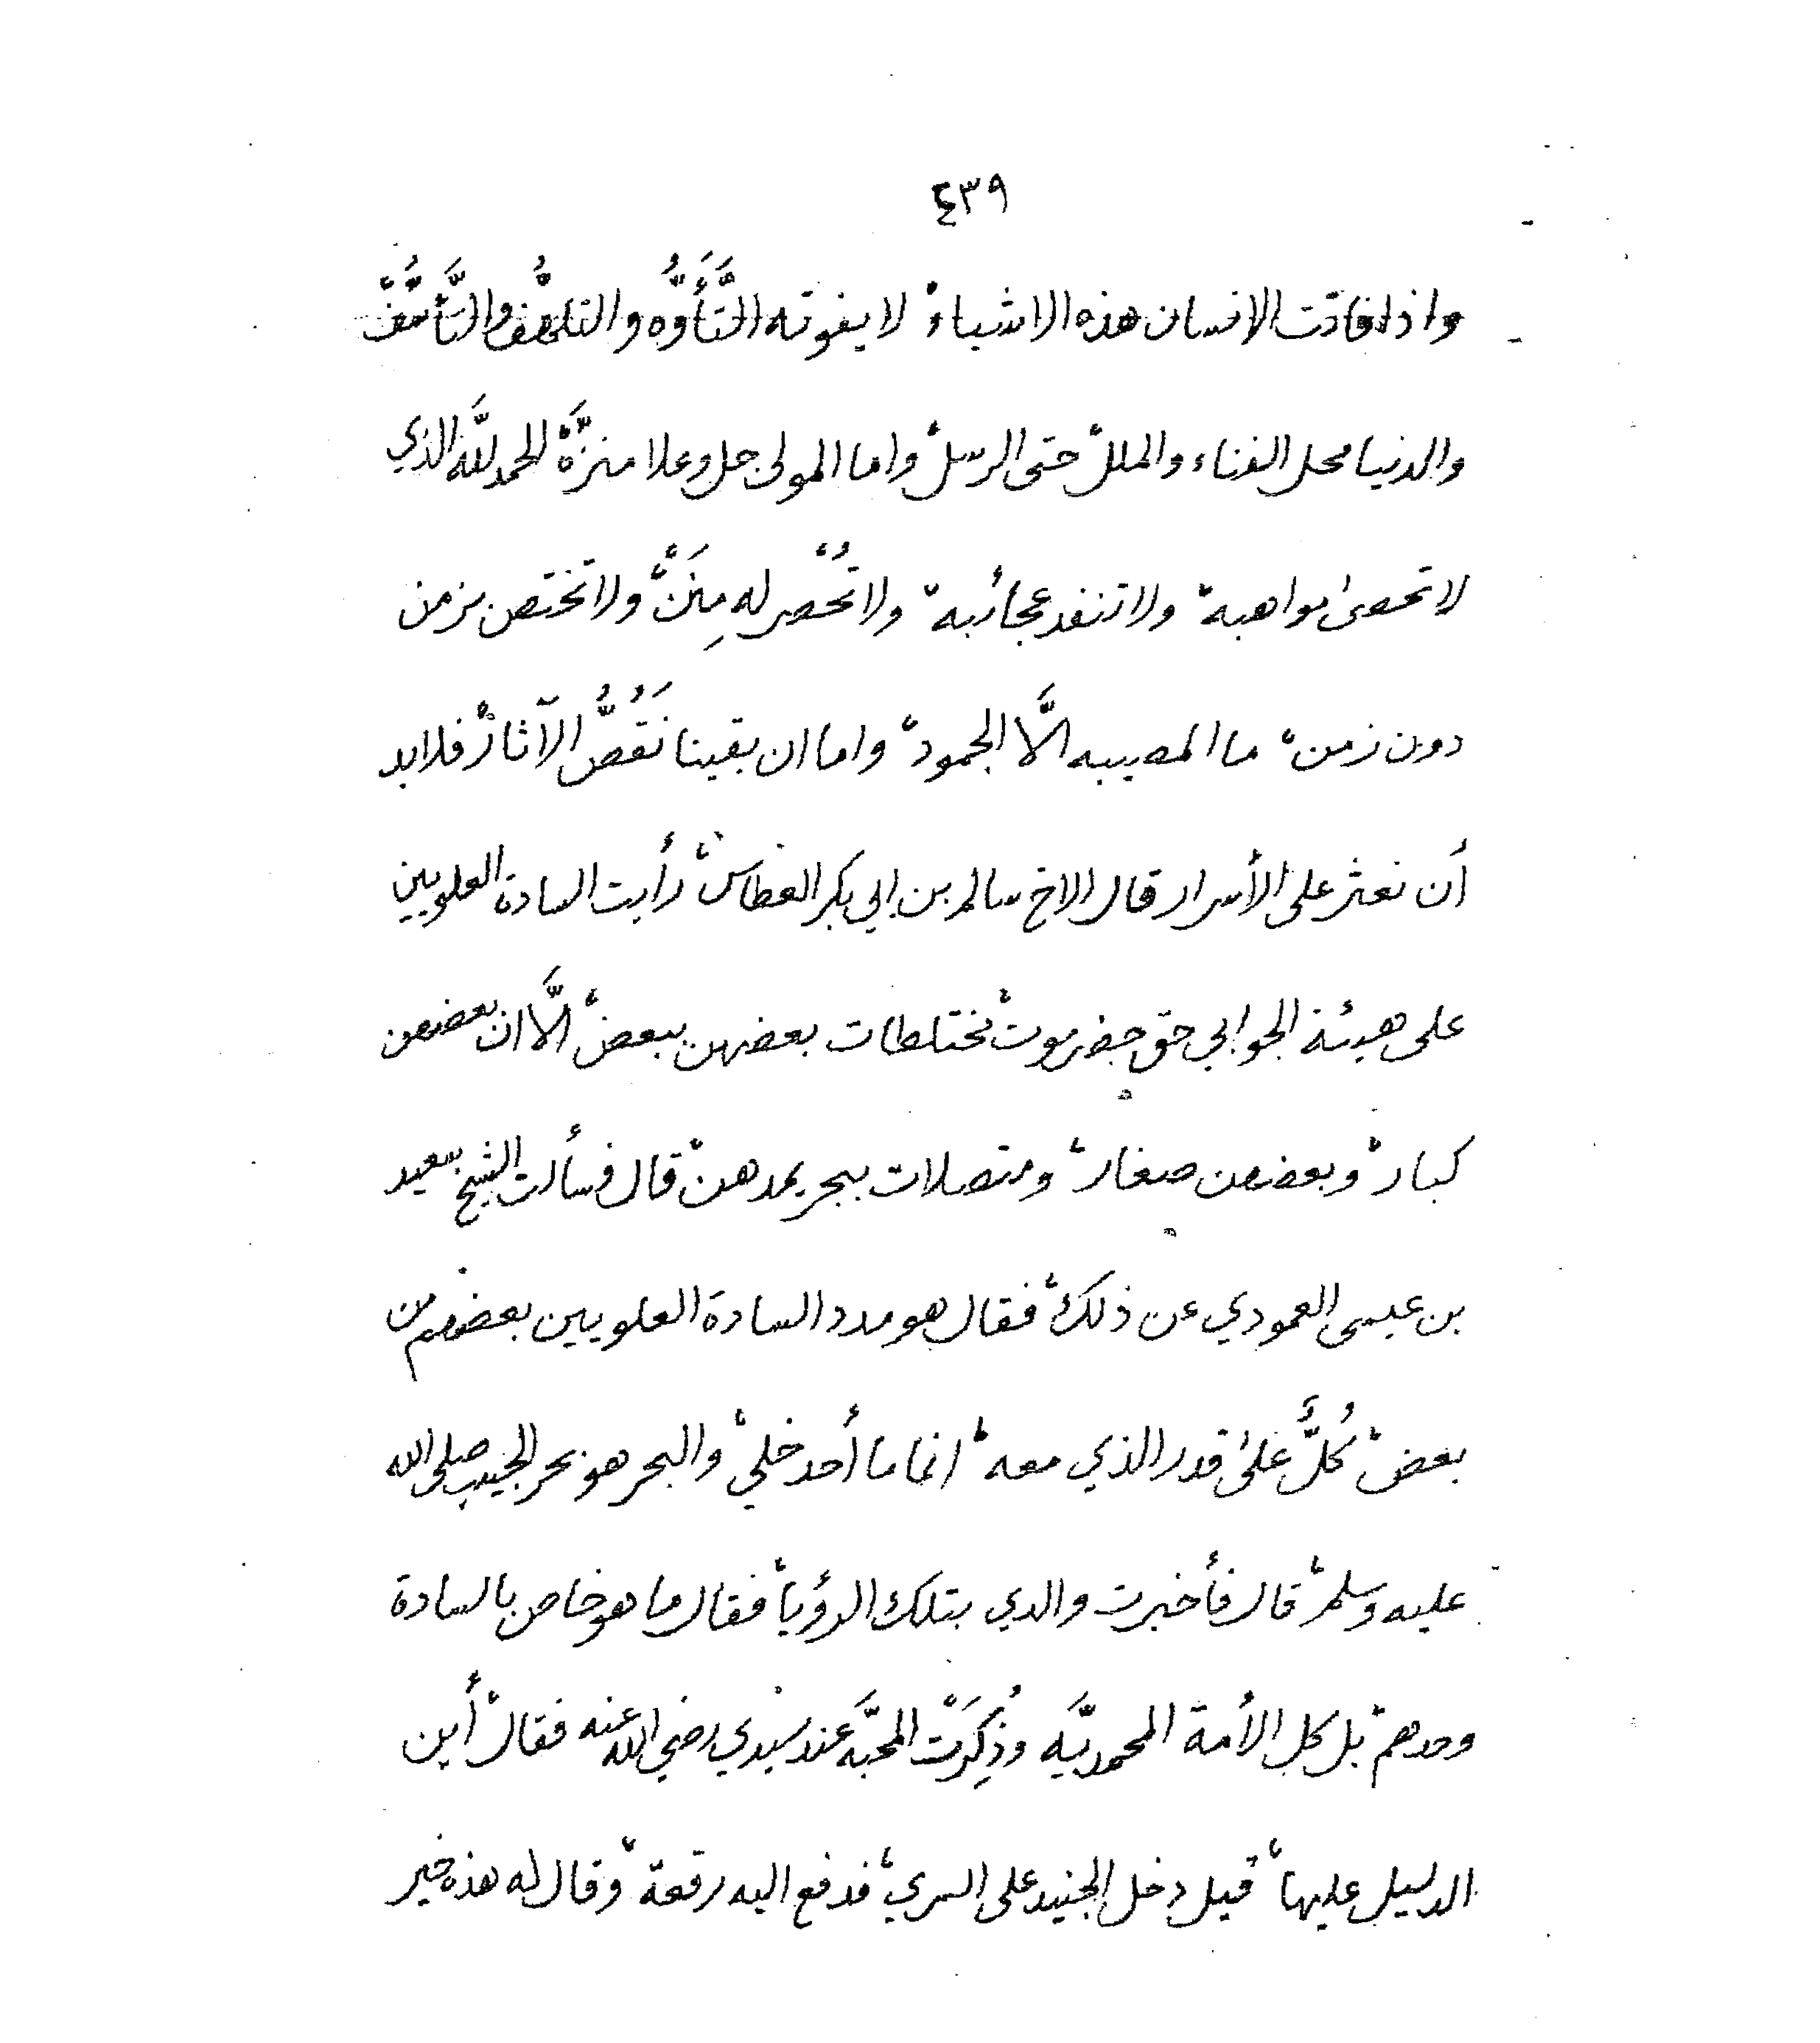 ٤٣٩
واذا فاتت الانسان هذه الاشياءْ لا يفوته التَّأَوُّه والتلهُّف والتَّأسُّفْ
والدنيا محل الفناء والمللْ حتى الرسلْ واما المولى جل وعلا منزَّهْ الحمد للَّه الذي
لا تحصىٰ مواهبهْ ولا تنفد عجائبهْ ولا تُحْصر له مِنَنْ ولا تختص بزمن
دون زمنْ ما المصيبه الَّا الجمودْ واما ان بقينا نَقُصُّ الآثارْ فلابد
أن نعثر على الأسرار قال الاخ سالم بن ابي بكر العطاسْ رأيت السادة العلويين
على هيئة الجوابي حق حضرموتْ مختلطات بعضهن ببعضْ الَّا ان بعضهن
كبارْ وبعضهن صغارْ ومتصلات ببحر يمدهنْ قال فسألت الشيخ سعيد
بن عيسى العمودي عن ذلكْ فقال هو مدد السادة العلويين بعضهم من
بعضْ كُلٌّ علىٰ قدر الذي معهْ انما ما أحد خليْ والبحر هو بحر الحبيب صلى الله
عليه وسلمْ قال فأخبرت والدي بتلك الرؤياْ فقال ما هو خاص بالسادة
وحدهمْ بل كل الأمة المحمديَّه وذُكِرَتْ المحبَّه عند سيدي رضي الله عنه فقالْ أين
الدليل عليهاْ قيل دخل الجنيد على السريْ فدفع اليه رقعةْ وقال له هذه خير